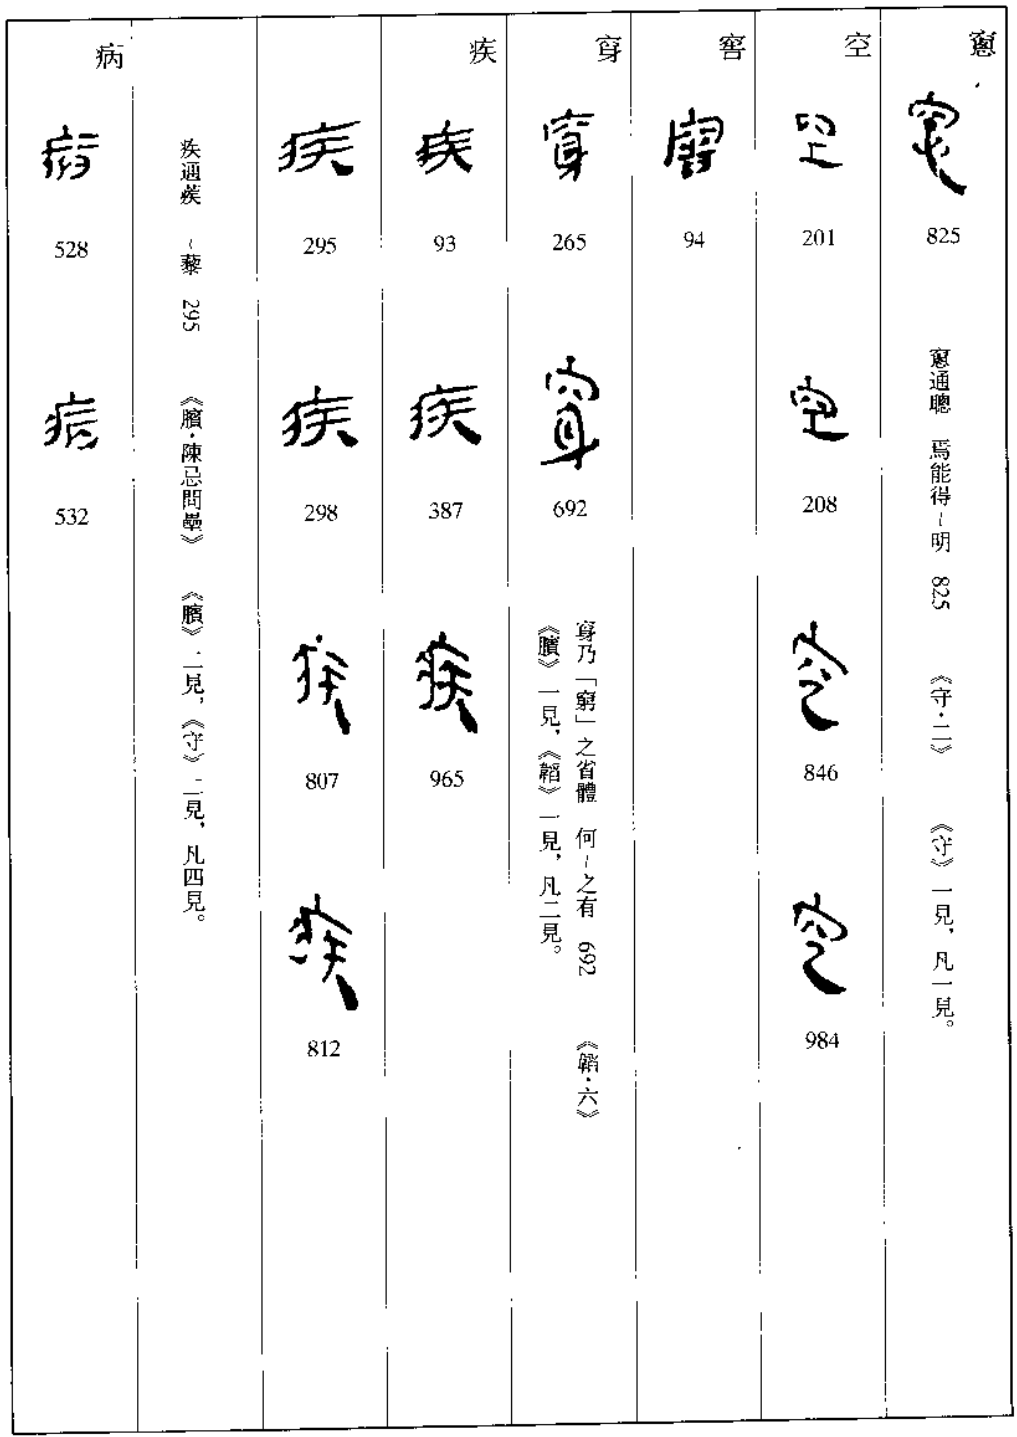 窻
825
窻通聰 焉能得~明 825 《守·二》 《守》一見，凡一見。
空
201
208
846
984
窖
94
窮
265
692
窮乃「窮」之省體 何~之有 692 《韜·六》
《臏》一見，《韜》一見，凡二見。
疾
93
387
965
295
298
807
812
疾通蒺 ~藜 295 《臏·陳忌問壘》 《臏》二見，《守》二見，凡四見。
病
528
532